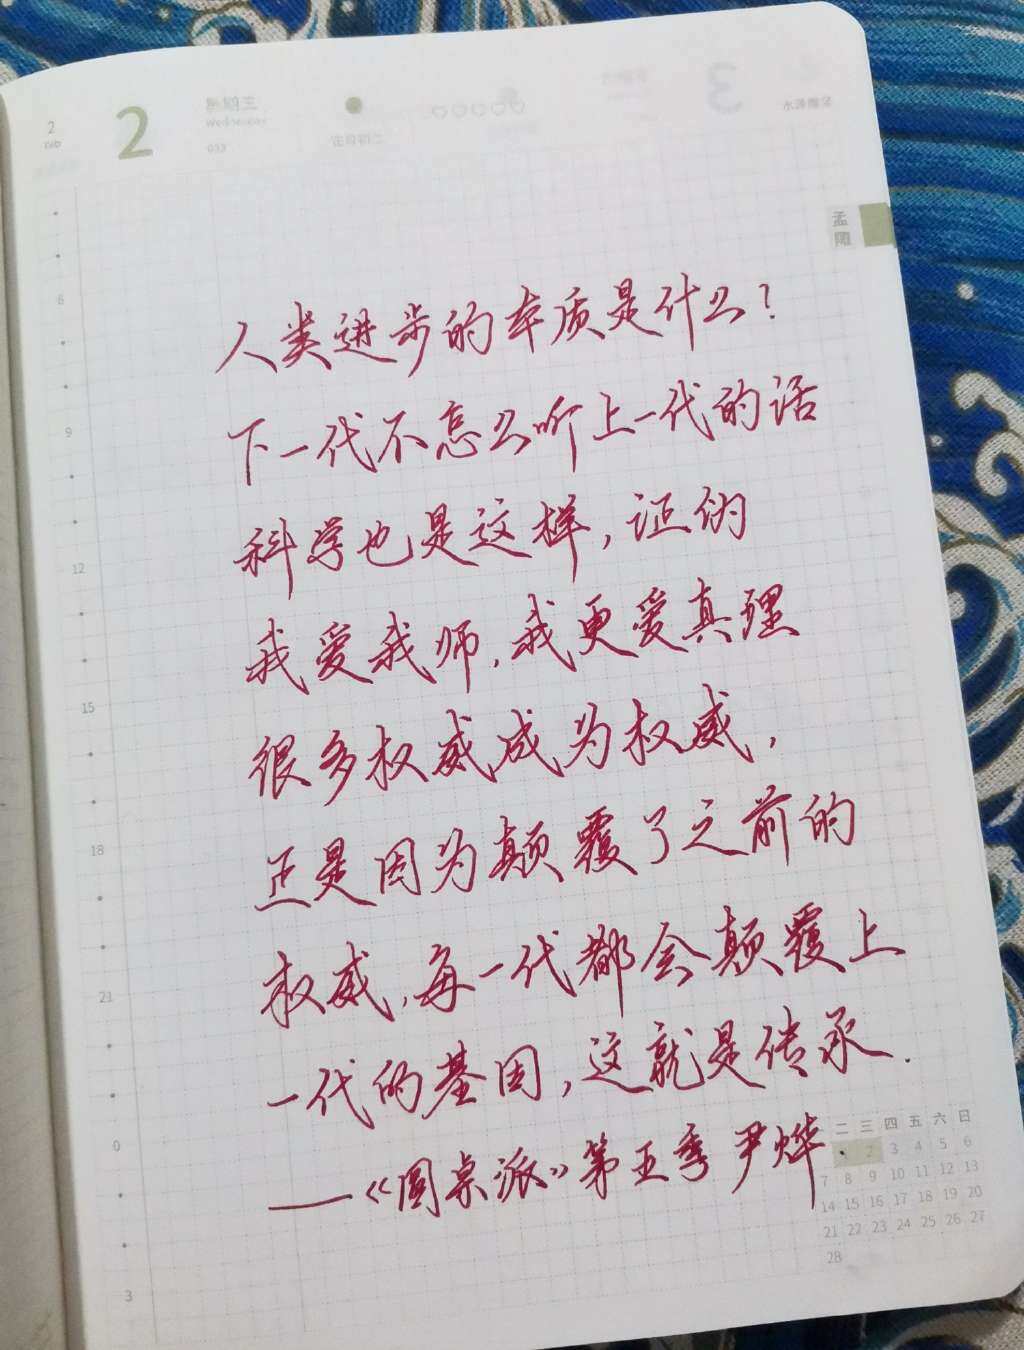 2
Feb
2
星期三
Wednesday
033
正月初二
孟陬
6
9
12
15
18
21
0
3
人类进步的本质是什么？
下一代不怎么听上一代的话
科学也是这样，证伪
我爱我师，我更爱真理
很多权威成为权威，
正是因为颠覆了之前的
权威，每一代都会颠覆上
一代的基因，这就是传承.
——《圆桌派》第五季 尹烨
二 三 四 五 六 日
2 3 4 5 6
7 8 9 10 11 12 13
14 15 16 17 18 19 20
21 22 23 24 25 26 27
28